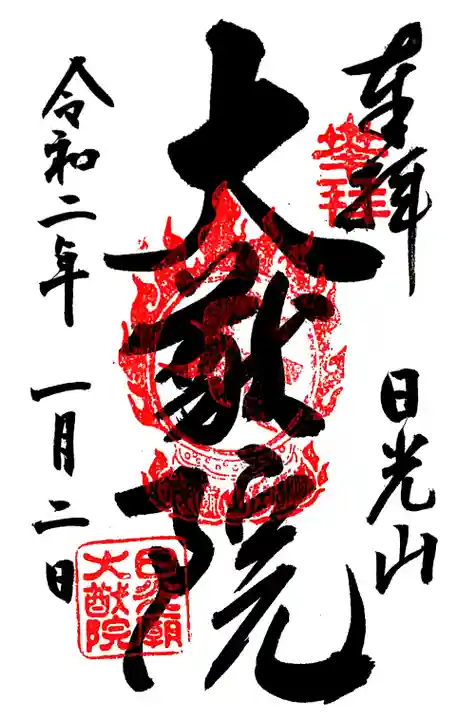 奉拝
日光山
大猷院
令和二年
一月二日
日光廟
大猷院